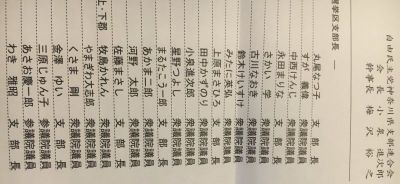 自由民主党神奈川県支部連合会
会長 小泉進次郎
幹事長 梅沢裕之
選挙区支部長 ー
丸尾なつ子 支部長
すが義偉 衆議院議員
中西けんじ 衆議院議員
永田まりな
さかい学 衆議院議員
古川なおき 衆議院議員
鈴木けいすけ 衆議院議員
みたに英弘 衆議院議員
上原まさひろ
田中かずのり 衆議院議員
小泉進次郎 衆議院議員
星野つよし 衆議院議員
まるたこう二郎
あかま二郎 衆議院議員
佐藤まさし
河野太郎 衆議院議員
牧島かれん 衆議院議員
やまぎわ大志郎
くさま剛 支部長
金澤ゆい 支部長
三原じゅん子 参議院議員
あさお慶一郎 参議院議員
わき雅昭 参議院議員